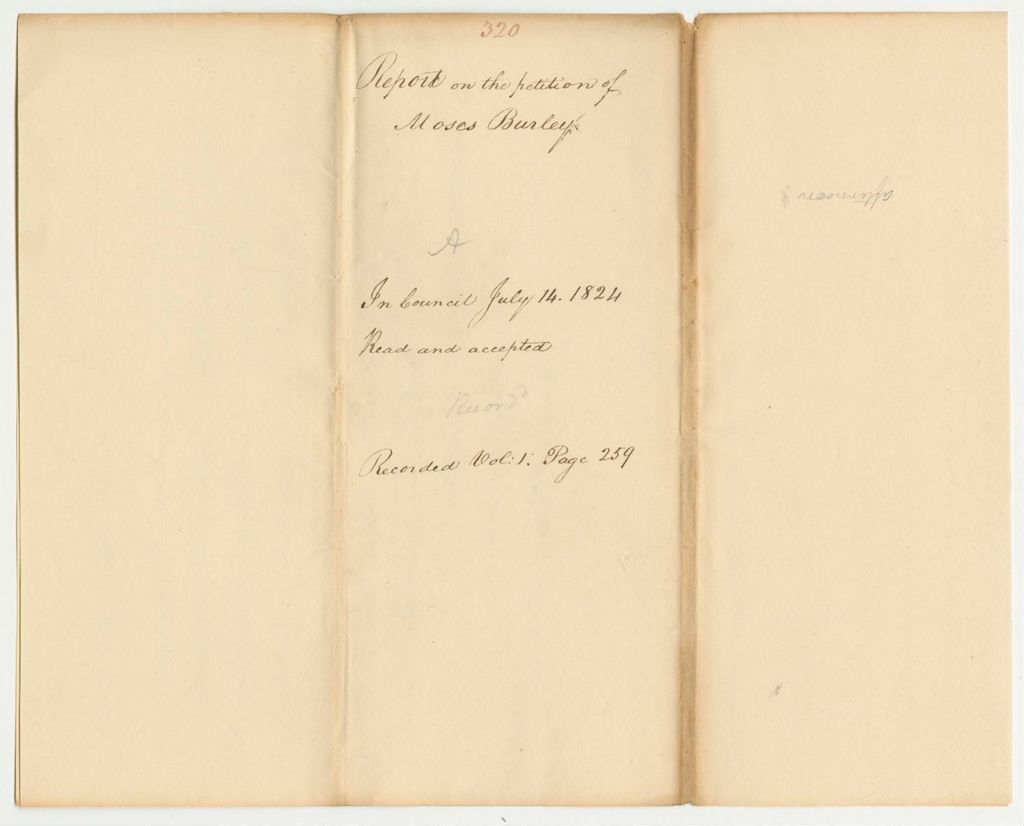 320
Report on the petition of
Moses Burley
A
In Council July 14. 1824
Read and accepted
Record
Recorded Vol: 1: Page 259
afternoon